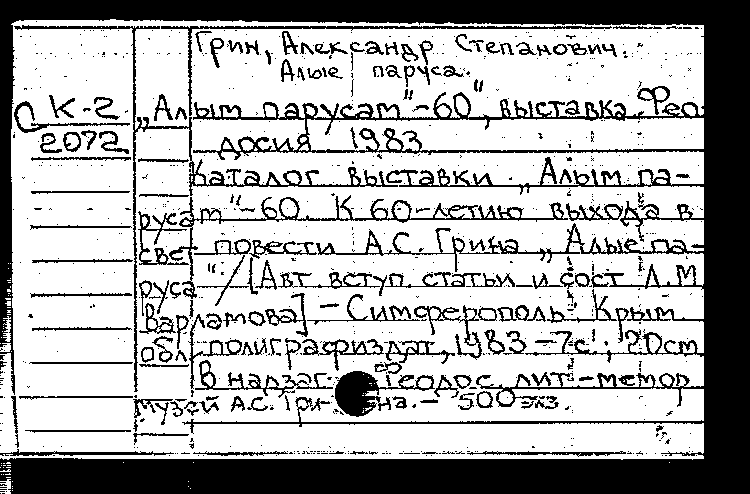 Грин, Александр Степанович.
Алые паруса.
К-2
2072
„Алым парусам"-60", выставка. Фео-
досия 1983
Каталог выставки „Алым па-
русам"-60. К 60-летию выхода в
свет повести А.С. Грина „Алые па-
руса": / [Авт. вступ. статьи и сост Л.М.
Варламова]. - Симферополь: Крым.
обл. полиграфиздат, 1983. - 7с.; 20см
В надзаг: Феодос. лит-мемор
музей А.С. Грина. - 500 экз.